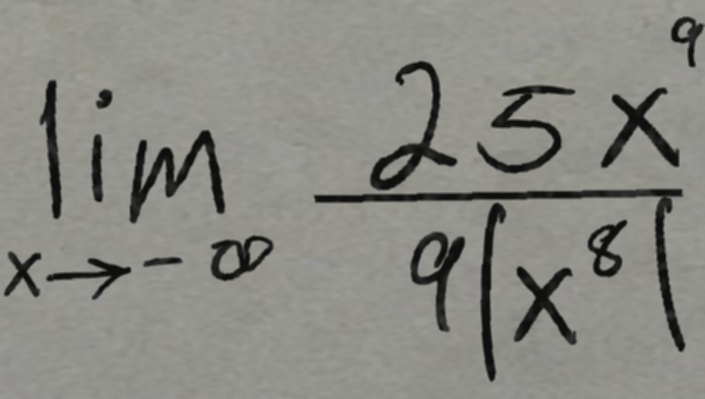 lim x→-∞ 25x⁹ / 9|x⁸|